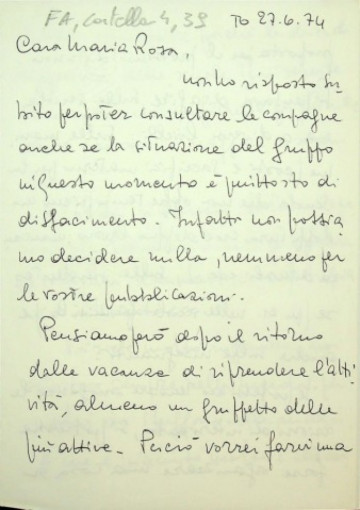 FA, cartella 4, 39 To 27.6.74
Cara Maria Rosa,
non ho risposto su-
bito per poter consultare le compagne
anche se la situazione del gruppo
in questo momento è piuttosto di
disfacimento. Infatti non possia
mo decidere nulla, nemmeno per
le vostre pubblicazioni.
Pensiamo però dopo il ritorno
dalle vacanze di riprendere l'atti-
vità, almeno un gruppetto delle
più attive. Perciò vorrei farvi una